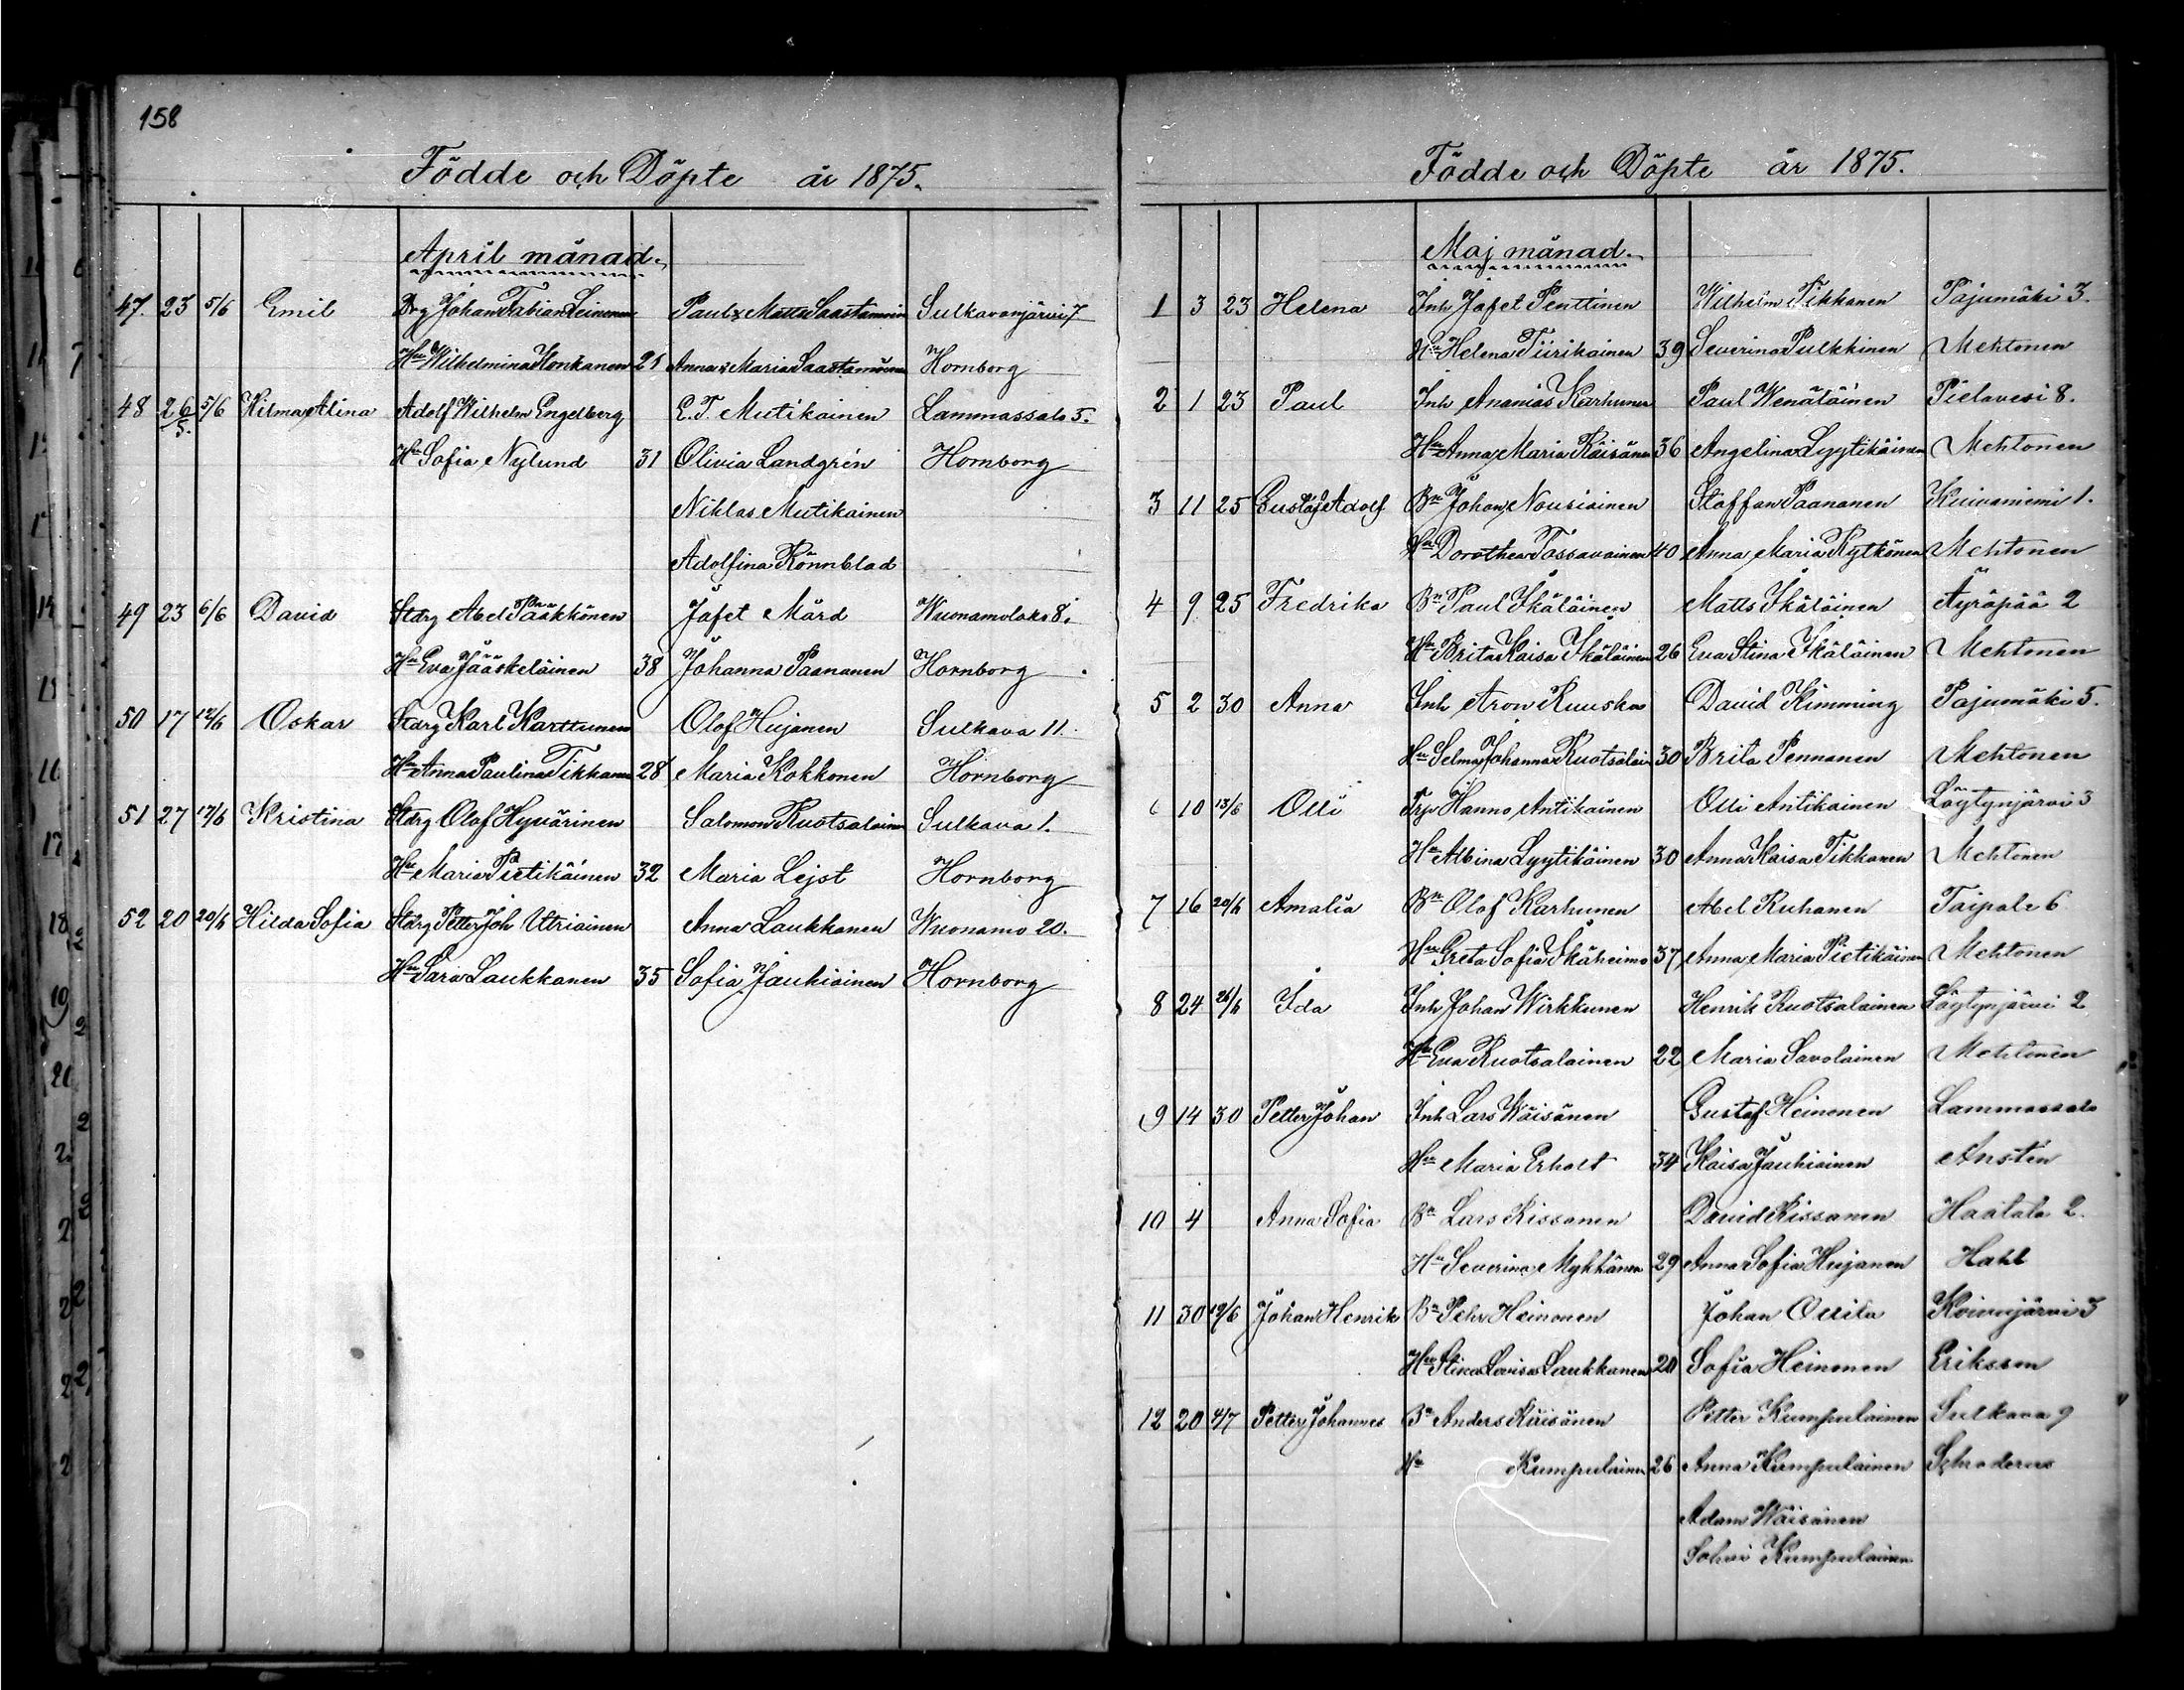 158
Födde och Döpte år 1875.
April månad.
47. 23 5/6 Emil Drg Johan Fabian Leinonen Paul & Matts Saastamoinen Sulkavanjärvi 7
Hu Wilhelmina Konkanen 21 Anna & Maria Saastamoinen Hornborg
48 26/5. 5/6 Hilma Alina Adolf Wilhelm Engelberg E. T. Mutikainen Lammassalo 5.
Hu Sofia Nylund 31 Olivia Landgrén Hornborg
Niklas Mutikainen
Adolfina Rönnblad
49 23 6/6 David Stdrg Abel Pääkkönen Jafet Mård Wuonamolaks 8.
Hu Eva Jääskeläinen 38 Johanna Paananen Hornborg
50 17 12/6 Oskar Stdrg Karl Karttunen Olof Hujanen Sulkava 11.
Hu Anna Paulina Tikkanen 28 Maria Kokkonen Hornborg
51 27 17/6 Kristina Stdrg Olof Hyvärinen Salomon Ruotsalainen Sulkava 1.
Hu Maria Pietikäinen 32 Maria Lejst Hornborg
52 20 20/6 Hilda Sofia Stdrg Petter Joh Utriainen Anna Laukkanen Wuonamo 20.
Hu Sara Laukkanen 35 Sofia Jauhiainen Hornborg
Födde och Döpte år 1875.
Maj månad.
1 3 23 Helena Inh Jafet Penttinen Wilhelm Tikkanen Pajumäki 3.
Hu Helena Tiirikainen 39 Severina Pulkkinen Mehtonen
2 1 23 Paul Inh Ananias Karhunen Paul Wenäläinen Pielavesi 8.
Hu Anna Maria Räisänen 36 Angelina Lyytikäinen Mehtonen
3 11 25 Gustaf Adolf Bn Johan Nousiainen Staffan Paananen Kuivaniemi 1.
Hu Dorothea Tossavainen 40 Anna Maria Kytkönen Mehtonen
4 9 25 Fredrika Bn Paul Ikäläinen Matts Ikäläinen Äyräpää 2
Hu Brita Kaisa Ikäläinen 26 Eva Stina Ikäläinen Mehtonen
5 2 30 Anna Inh Aron Ruuska David Kimming Pajumäki 5.
Hu Selma Johanna Ruotsalain 30 Brita Pennanen Mehtonen
6 10 13/6 Olli Trp Hanno Antikainen Olli Antikainen Löytynjärvi 3
Hu Albina Lyytikäinen 30 Anna Kaisa Tikkanen Mehtonen
7 16 20/6 Amalia Bn Olof Karhunen Abel Ruhanen Taipale 6
Hu Greta Sofia Ikäheimo 37 Anna Maria Pietikäinen Mehtonen
8 24 26/6 Ida Inh Johan Wirkkunen Henrik Ruotsalainen Löytynjärvi 2
Hu Eva Ruotsalainen 22 Maria Savolainen Mehtonen
9 14 30 Petter Johan Inh Lars Wäisänen Gustaf Heinonen Lammassalo
Hu Maria Erholt 34 Kaisa Jauhiainen Anstén
10 4 Anna Sofia Bn Lars Kissanen David Kissanen Haatala 2.
Hu Severina Mykkänen 29 Anna Sofia Hujanen Hahl
11 30 19/6 Johan Henrik Bn Pehr Heinonen Johan Ollila Koivujärvi 3
Hu Stina Lovisa Laukkanen 20 Sofia Heinonen Eriksson
12 20 4/7 Petter Johannes Bn Anders Räisänen Petter Kumpulainen Sulkava 9
Hu Kumpulainen 26 Anna Kumpulainen Schroderus
Adam Wäisänen
Kumpulainen